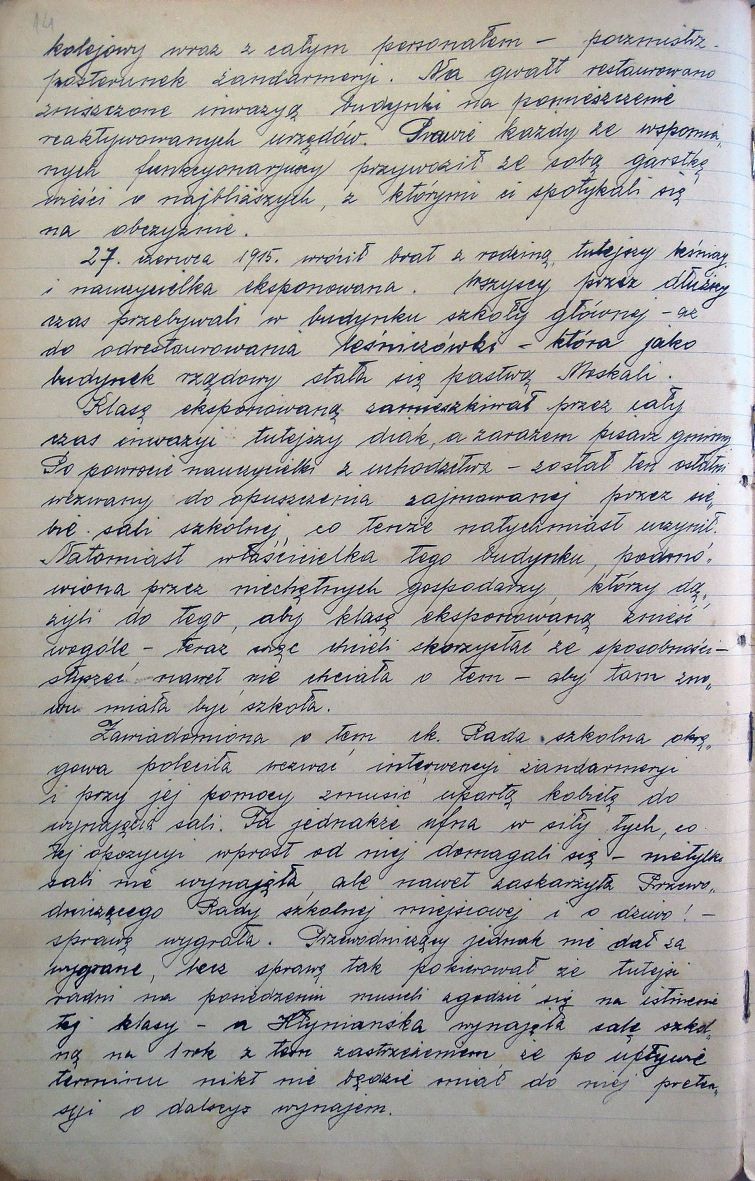 121
kolejowy wraz z całym personałem – poczmistrz.
posterunek żandarmerji. Na gwałt restaurowano
zniszczone inwazyą budynki na pomieszczenie
reaktywowanych urzędów. Prawie każdy ze wspomnia„
nych funkcyonarjuszy przywoził ze sobą garstkę
wieści o najbliższych, z którymi ci spotykali się
na obczyznie.
27. czerwca 1915. wrócił brat z rodziną, tutejszy leśniczy
i nauczycielka eksponowana. Wszyscy przez dłuższy
czas przebywali w budynku szkoły głównej – aż
do odrestaurowania leśniczówki – która jako
budynek rządowy stała się pastwą Moskali.
Klasę eksponowaną zamieszkiwał przez cały
czas inwazyi tutejszy diak, a zarazem pisarz gminny
Po powrocie nauczycielki z uchodźctwa – został ten ostatni
wezwany do opuszczenia zajmowanej przez sie„
bie sali szkolnej, co tenże natychmiast uczynił.
Natomiast właścicielka tego budynku, podmó„
wiona przez niechętnych gospodarzy, którzy dą„
żyli do tego, aby klasę eksponowaną znieść
wogóle – teraz więc chcieli skorzystać ze sposobności –
słyszeć nawet nie chciała o tem – aby tam zno„
wu miała być szkoła.
Zawiadomiona o tem ck. Rada szkolna okrę„
gowa poleciła wezwać interwencyi żandarmerji
i przy jej pomocy zmusić upartą kobietę do
wynajęcia sali. Ta jednakże ufna w siły tych, co
tej opozycyi wprost od niej domagali się – nietylko
sali nie wynajęła, ale nawet zaskarżyła Przewo„
dniczącego Rady szkolnej miejscowej i o dziwo! –
sprawę wygrała. Przewodniczący jednak nie dał za
wygrane, lecz sprawę tak pokierował że tutejsi
radni na posiedzeniu musieli zgodzić się na istnienie
tej klasy – a Kłymiańska wynajęła salę szkol„
ną na 1 rok z tem zastrzeżeniem że po upływie
terminu nikt nie będzie miał do niej preten„
syi o dalszy wynajem.